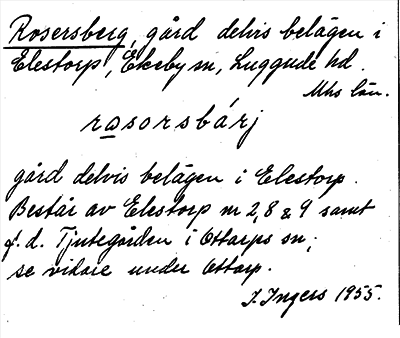 Rosersberg, gård delvis belägen i
Elestorp, Ekeby sn, Luggude hd.
Mhs län.
rasorsbárj
gård delvis belägen i Elestorp.
Består av Elestorp nr 2, 8 & 9 samt
f. d. Tjutegården i Ottarps sn;
se vidare under Ottarp.
I. Ingers 1955.